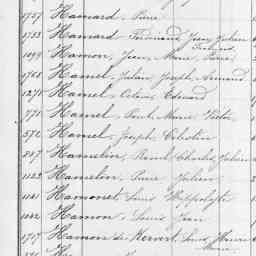 1757 Hamard Pierre
1753 Hamard Ferdinand Jean Julien
François
1099 Hamon, Jean Marie Pierre
1768 Hamel, Julien Joseph Armand
1271 Hamel Octave Edouard
1771 Hamel, Paul Marie Victor
572 Hamel, Joseph Célestin
847 Hamelin, René Charles Julien
1122 Hamelin, Pierre Julien
1141 Hamonet Louis Hippolyte
1082 Hamon Louis Jean
1717 Hamon de Kervert, Louis
Marie